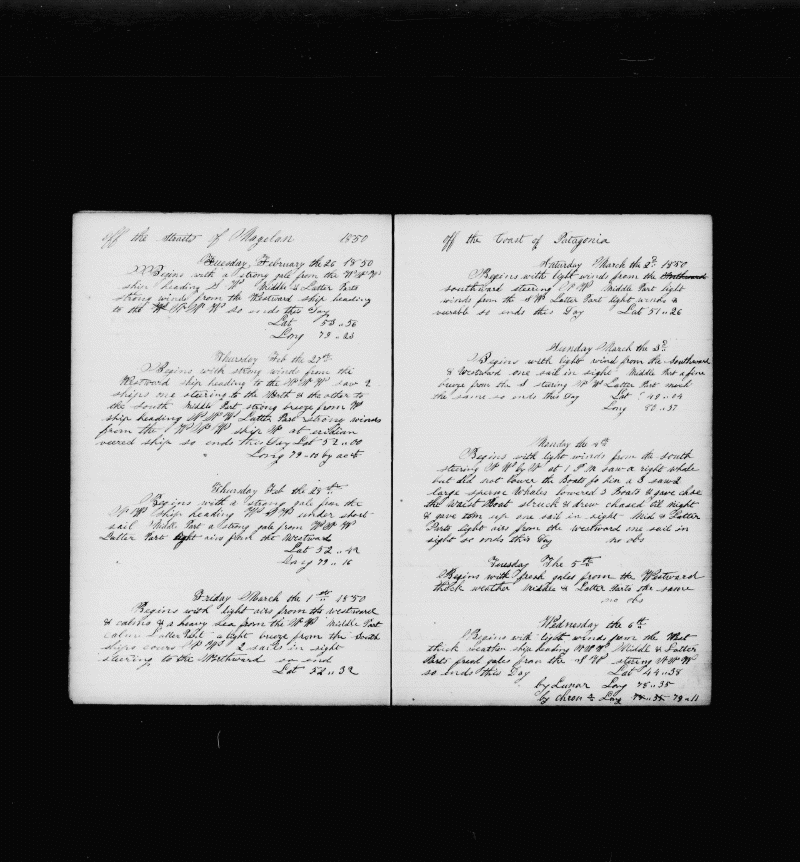 off the straits of Magelan 1850
Tuesday, February the 26 1850
Begins with a strong gale from the WNW
ship heading S W Middle & Latter Parts
strong winds from the Westward ship heading
to the so ends this Day
Lat 53 .. 56
Long 79 .. 23
Thursday Feb the 27th
Begins with strong winds from the
Westward ship heading to the saw 2
ships one steering to the North & the other to
the South Middle Part strong breeze from W
ship heading Latter Part strong winds
from the ship at
ship so ends this Day Lat 52 .. 00
Long 79 .. 00 by act
Thursday Feb the 28th
Begins with a strong gale from the
ship heading under short
sail Middle Part a strong gale from
Latter Part light airs from the Westward
Lat 52 .. 42
Long 79 .. 16
Friday March the 1st 1850
Begins with light airs from the westward
& catchs & a heavy sea from the Middle Part
calm Latter Part a light breeze from the South
ships cours 2 sails in sight
steering to the Northward so end
Lat 52 .. 32
off the Coast of Patagonia
Saturday March the 2d 1850
Begins with light winds from the
southward steering Middle Part light
winds from the S W Latter Part light winds &
verable so ends this Day Lat 51 .. 26
Sunday March the 3d
Begins with light wind from the Southward
& Westward one sail in sight Middle Part a fine
breeze from the S stering Latter Part much
the same so ends this Day Lat 49 .. 04
Long 80 .. 37
Monday the 4th
Begins with light winds from the south
stering N W by W at 1 P M saw a right whale
but did not lower the Boats fo him a 3 saw
large sperm Whales lowered 3 Boats & gave chase
the Waist Boat struck & drew chased till night
& gave tham up one sail in sight Mid & Latter
Parts light airs from the westward one sail in
sight so ends this Day no obs
Tuesday The 5th
Begins with fresh gales from the Westward
thick weather Middle & Latter Parts the same
no obs
Wednesday the 6th
Begins with light winds from the West
thick weather ship heading Middle & Latter
Parts fresh gales from the S W stering
so ends this Day Lat 44 .. 38
by Lunar Long 78 .. 35
by chron Long 79 .. 11